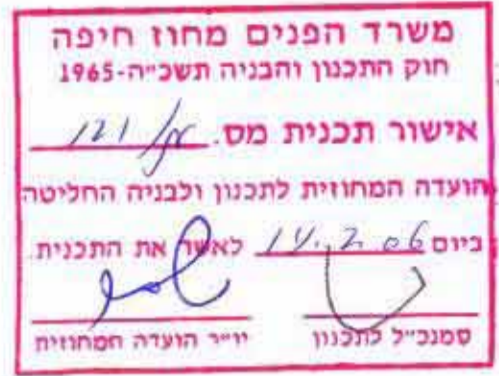 משרד הפנים מחוז חיפה
חוק התכנון והבניה תשכ״ה-1965
אישור תכנית מס. /121
הועדה המחוזית לתכנון ולבניה החליטה
ביום 14.2.06 לאשר את התכנית.
סמנכ״ל לתכנון יו״ר הועדה המחוזית